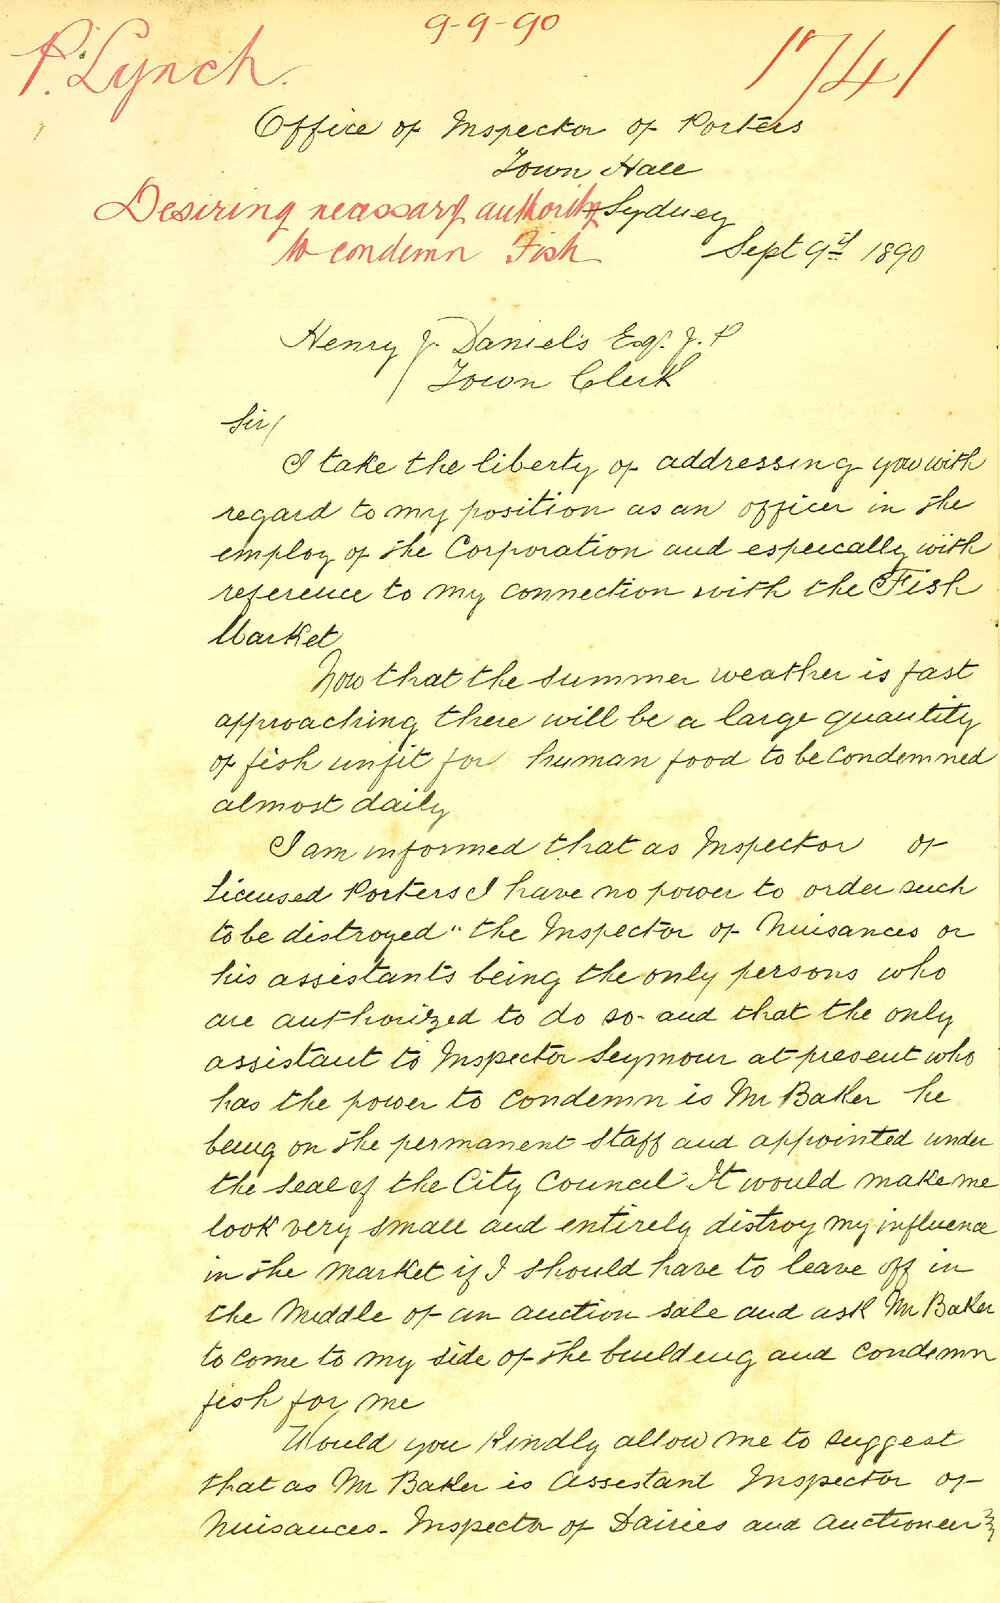 9-9-90
P. Lynch.
1741
Office of Inspector of Porters
Town Hall
Desiring neassary authority
Sydney
to condemn Fish
Sept 9th 1890
Henry J. Daniels Esq. J. P
Town Clerk
Sir/
I take the liberty of addressing you with
regard to my position as an officer in the
employ of the Corporation and especcally with
reference to my connection with the Fish
Market
Now that the summer weather is fast
approaching there will be a large quantity
of fish unfit for human food to be condemned
almost daily
I am informed that as Inspector of
Licensed Porters I have no power to order such
to be distroyed " the Inspector of Nuisances or
his assistants being the only persons who
are authorized to do so - and that the only
assistant to Inspector Seymour at present who
has the power to condemn is Mr Baker he
being on the permanent staff and appointed under
the seal of the City Council " It would make me
look very small and entirely distroy my influence
in the market if I should have to leave off in
the middle of an auction sale and ask Mr Baker
to come to my side of the building and condemn
fish for me
Would you kindly allow me to suggest
that as Mr Baker is Assistant Inspector of
Nuisances - Inspector of Dairies and Auctioneer